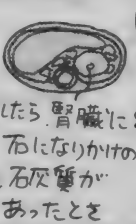 したら腎臓に
石になりかけの
石灰質が
あったとさ